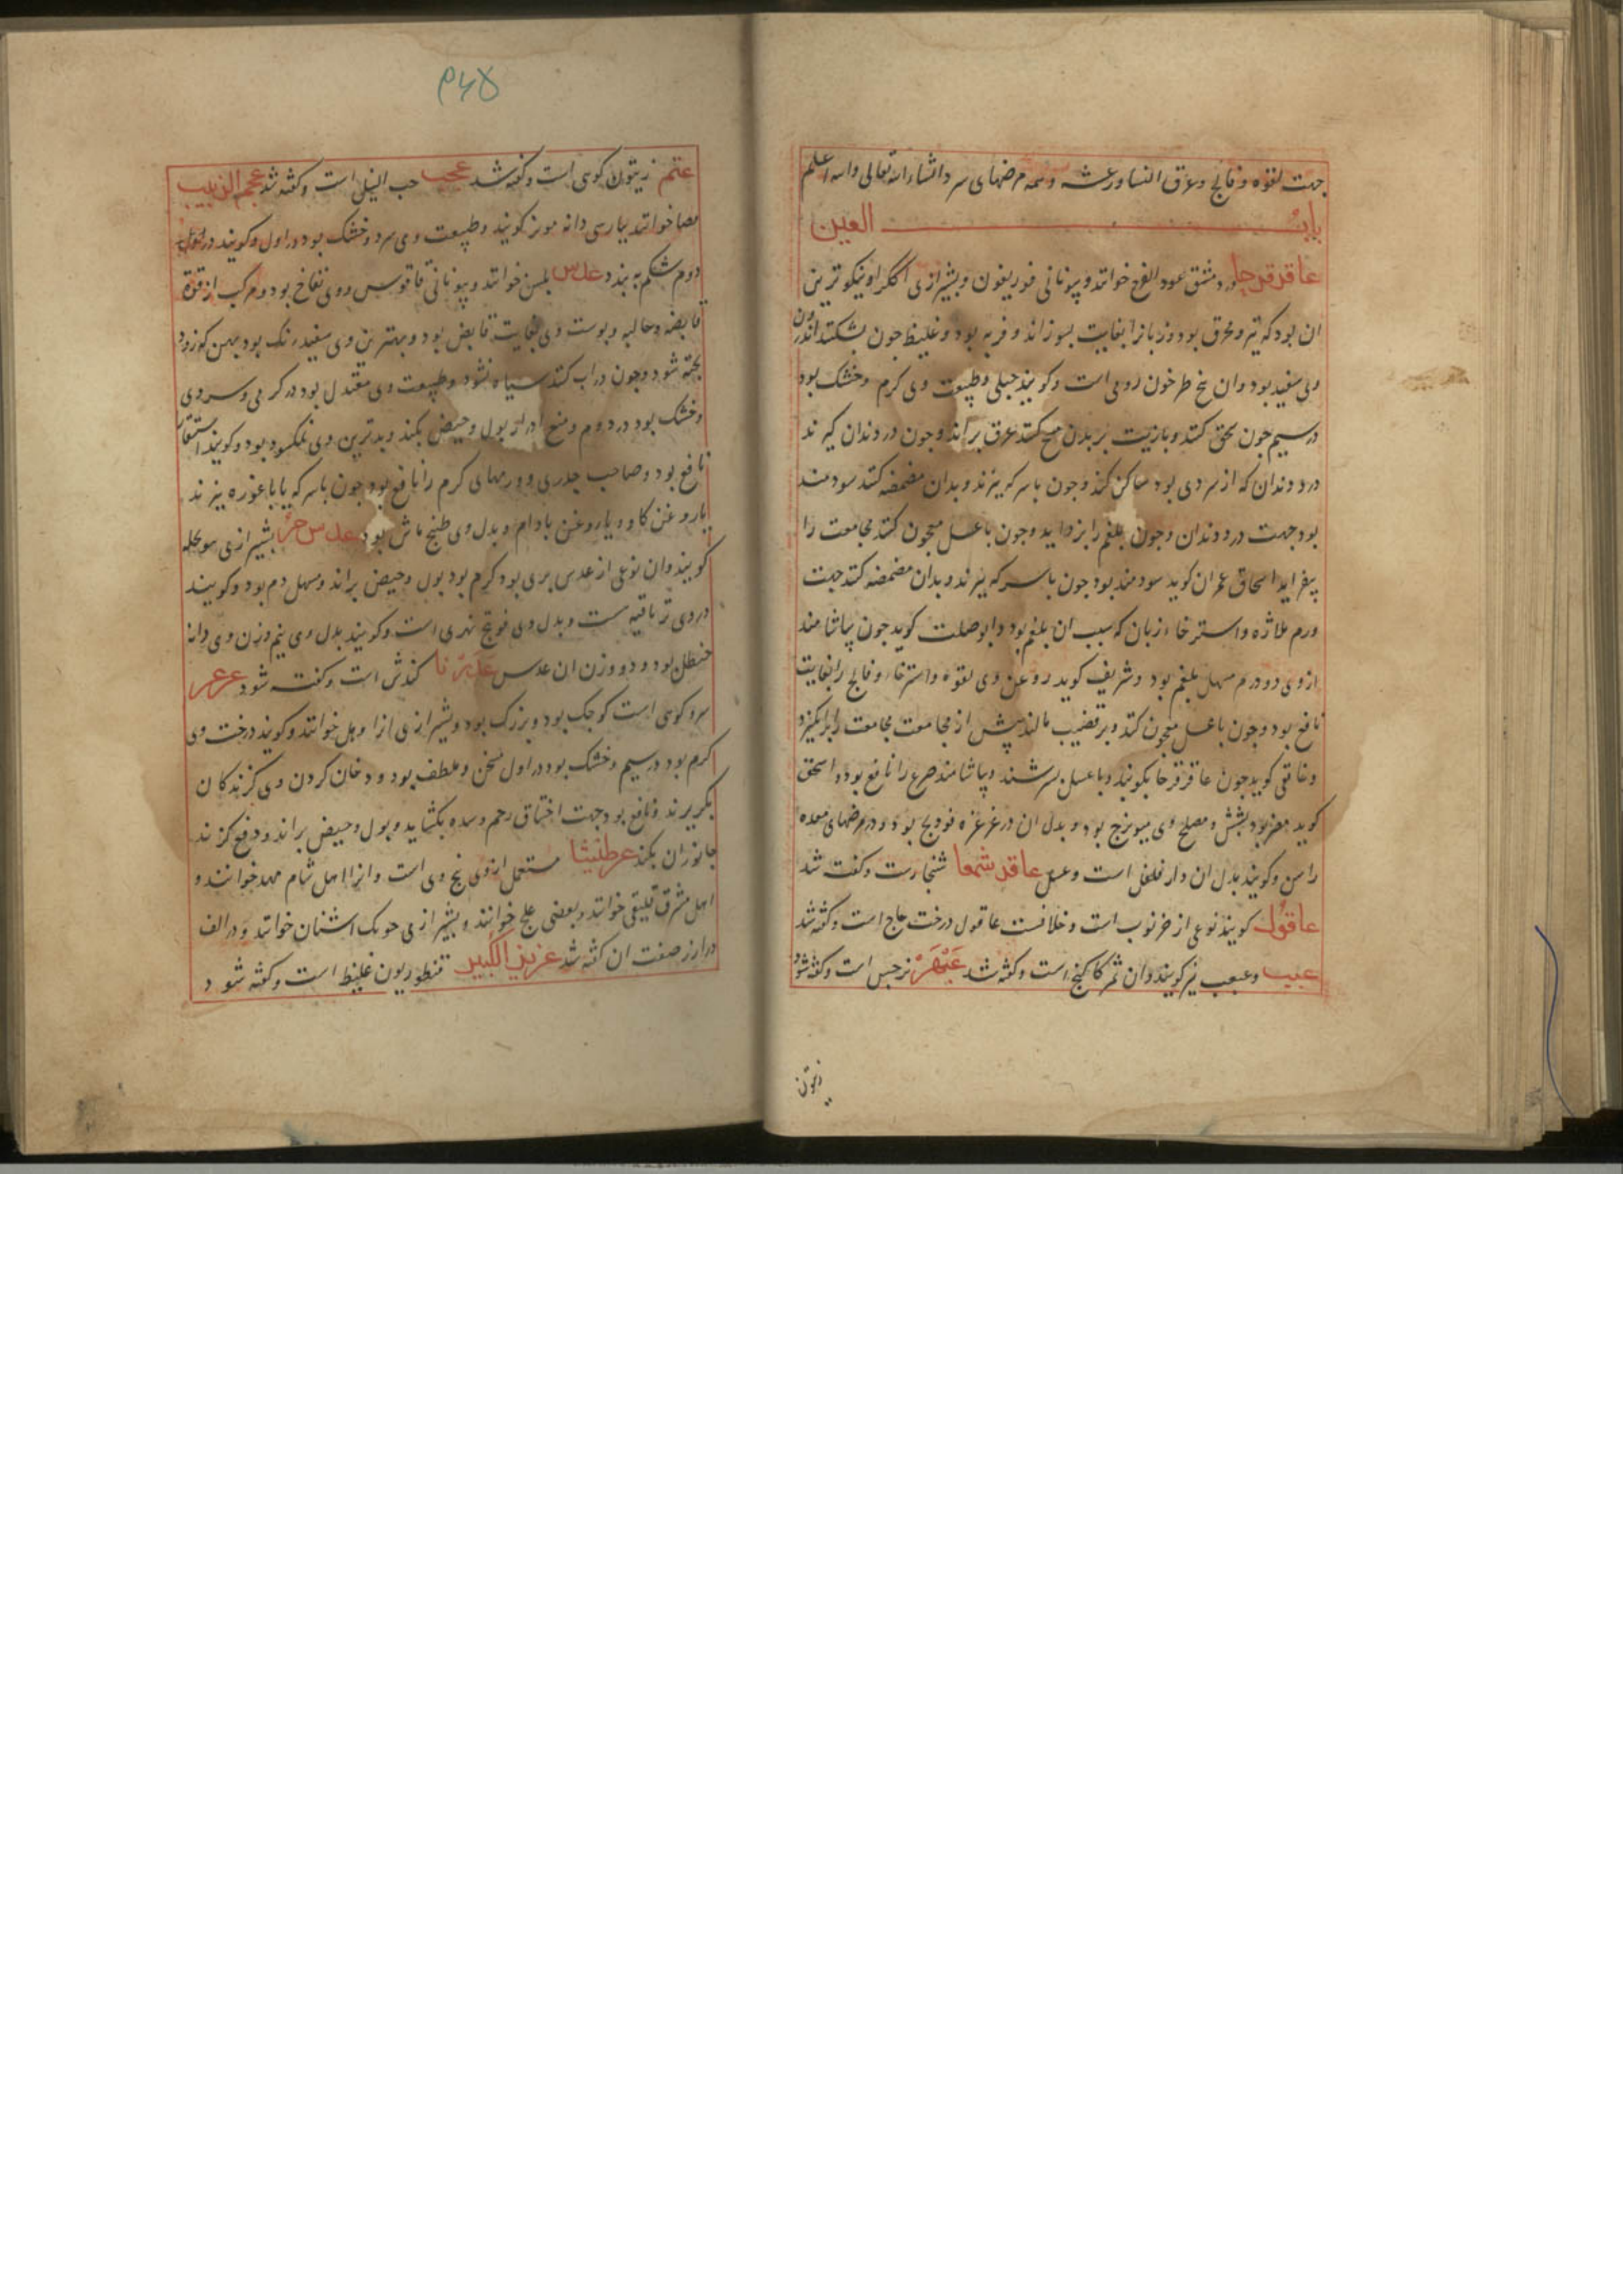 جهت لقوه و فالج و عرق النسا و رعشه و همه مرضهای سرد انشاء الله تعالی والله اعلم
باب العین
عاقرقرحا و دمشق عود القرح خوانند و بیونانی فوریغون و بشیرازی اککرا و نیکوترین
ان بود که تیز و محرق بود و زبانرا بغایت بسوزاند و فربه بود و غلیظ جون بشکنند اندرون
وی سفید بود و ان بیخ طرخون رومی است و کویند جبلی و طبیعت وی کرم و خشک بود
در سیم جون سحق کنند و بازیت بر بدن مسح کنند عرق براند و جون در دندان کیرند
درد دندان که از سردی بود ساکن کند و جون باسرکه بپزند و بدان مضمضه کنند سودمند
بود جهت درد دندان و جون بلغم را بزداید و جون باعسل معجون کنند مجامعت را
بیفزاید اسحاق عمران کوید سودمند بود جون باسرکه بپزند و بدان مضمضه کنند جهت
ورم ملاژه و استرخاء زبان که سبب ان بلغم بود و ابوصلت کوید جون بیاشامند
از وی دو درم مسهل بلغم بود و شریف کوید روغن وی لقوه و استرخاء و فالج را بغایت
نافع بود و جون باعسل معجون کنند و بر قضیب مالند پیش از مجامعت مجامعت را برانکیزد
و غافقی کوید جون عاقرقرحا بکوبند و با عسل بسرشند و بیاشامند صرع را نافع بود و اسحق
کوید مضر بود بشش و مصلح وی میویزج بود و بدل ان در غرغره فودنج بود و در مرضهای معده
راسن و کویند بدل ان دار فلفل است و عسل عاقد شمعا شنجارست و کفته شد
عاقول کویند نوعی از خرنوب است و خلافست عاقول درخت حاج است و کفته شد
عبب و عبعب نیز کویند و ان ثمر کاکنج است و کفته شد عبهر نرجس است و کفته شود
زیتون
۹۴۵
عتم زیتون کوهی است و کفته شد عجب حب النیل است و کفته شد عجم الزبیب
مصا خوانند بپارسی دانه مویز کویند و طبیعت وی سرد و خشک بود در اول و کویند در
دوم شکم به بندد عدس بلسن خوانند و بیونانی فاقوس و وی نفاخ بود و مرکب از قوة
قابضه و جالیه و پوست وی بغایت قابض بود و بهترین وی سفید رنک بود بهن که زود
پخته شود و جون در اب کنند سیاه نشود و طبیعت وی معتدل بود در کرمی و سردی
و خشک بود در دوم و منع ادرار بول و حیض بکند و بدترین وی نمکسود بود و کویند استسقا
نافع بود و صاحب جدری و ورمهای کرم را نافع بود جون باسرکه یا باغوره بپزند
یا روغن کاو و یا روغن بادام و بدل وی طبیخ ماش بود عدس مر بشیرازی مومحله
کویند و ان نوعی از عدس بری بود کرم بود بول و حیض براند و مسهل دم بود و کویند
در وی تریاقیه است و بدل وی فوتنج نهری است و کویند بدل وی نیم وزن وی دانه
حنظل بود و دو وزن ان عدس کندش است و کفته شود عرعر
سرو کوهی است کوجک بود و بزرک بود و بشیرازی انرا وهل خوانند و کویند درخت وی
کرم بود در سیم و خشک بود در اول مسخن و ملطف بود و دخان کردن وی کزندکان
بکریزند و نافع بود جهت اختناق رحم و سده بکشاید و بول و حیض براند و دفع کزند
جانوران بکند عرطنیثا مستعمل از وی بیخ وی است و انرا اهل شام مهد خوانند و
اهل مشرق قلیقی خوانند و بعضی علج خوانند و بشیرازی جوبک اشنان خوانند و در الف
در ارز صفت ان کفته شد عزیز الکبیر قنطوریون غلیظ است و کفته شود